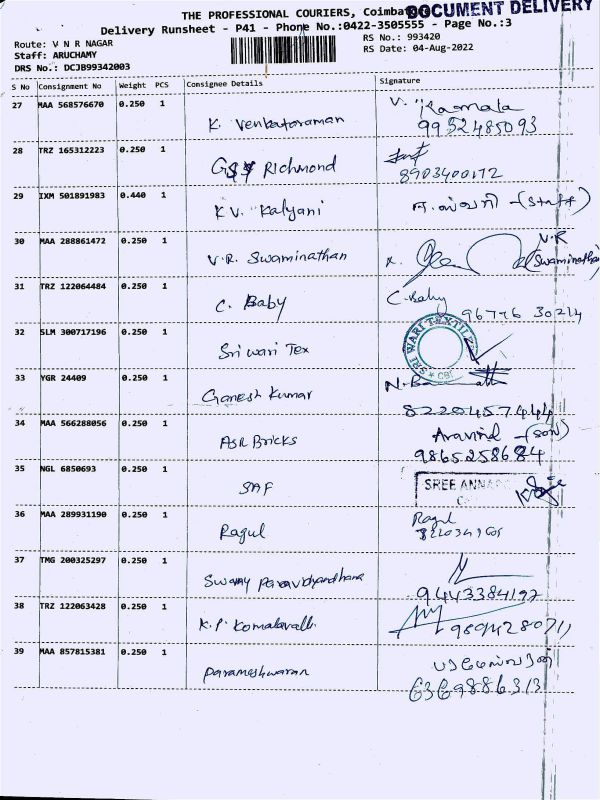 THE PROFESSIONAL COURIERS, Coimbatore
DOCUMENT DELIVERY
Delivery Runsheet - P41 - Phone No.:0422-3505555 - Page No.:3
Route: V N R NAGAR
RS No.: 993420
Staff: ARUCHAMY
RS Date: 04-Aug-2022
DRS No.: DCJB99342003
S No Consignment No Weight PCS Consignee Details Signature
27 MAA 568576670 0.250 1 K. Venkataraman V. Kamala
9952485093
28 TRZ 165312223 0.250 1 Richmond
8903400172
29 IXM 501891983 0.440 1 K.V. Kalyani (Staff)
30 MAA 288861472 0.250 1 V.R. Swaminathan V.R
(Swaminathan)
31 TRZ 122064484 0.250 1 C. Baby C. Baby
96776 30214
32 SLM 300717196 0.250 1 Sri wari Tex SRI WARI TEXTILE
CBE
33 YGR 24409 0.250 1 Ganesh Kumar
8220457444
34 MAA 566288056 0.250 1 ASR Bricks Aravind - (SON)
9865258684
35 NGL 6850693 0.250 1 SAF SREE ANNA
36 MAA 289931190 0.250 1 Ragul Ragul
37 TMG 200325297 0.250 1 Swamy
9443384197
38 TRZ 122063428 0.250 1 K.P. Komalavalli
39 MAA 857815381 0.250 1 Parameshwaran பரமேஸ்வரன்
6369886313